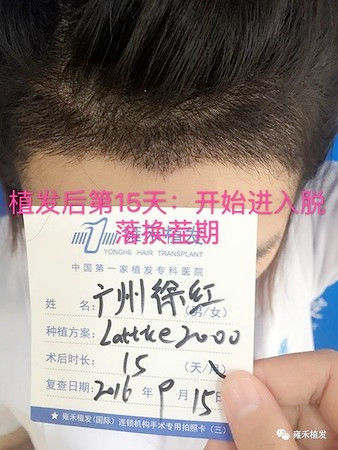 植发后第15天：开始进入脱
落换茬期
雍禾植发
YONGHE HAIR TRANSPLANT
中国第一家植发专科医院
姓 名：广州徐红（男/女）
种植方案：Lattice 2000
术后时长：15（天/月）
复查日期：2016年9月15日
★ 雍禾植发(国际) 连锁机构手术专用拍照卡（三）
雍禾植发